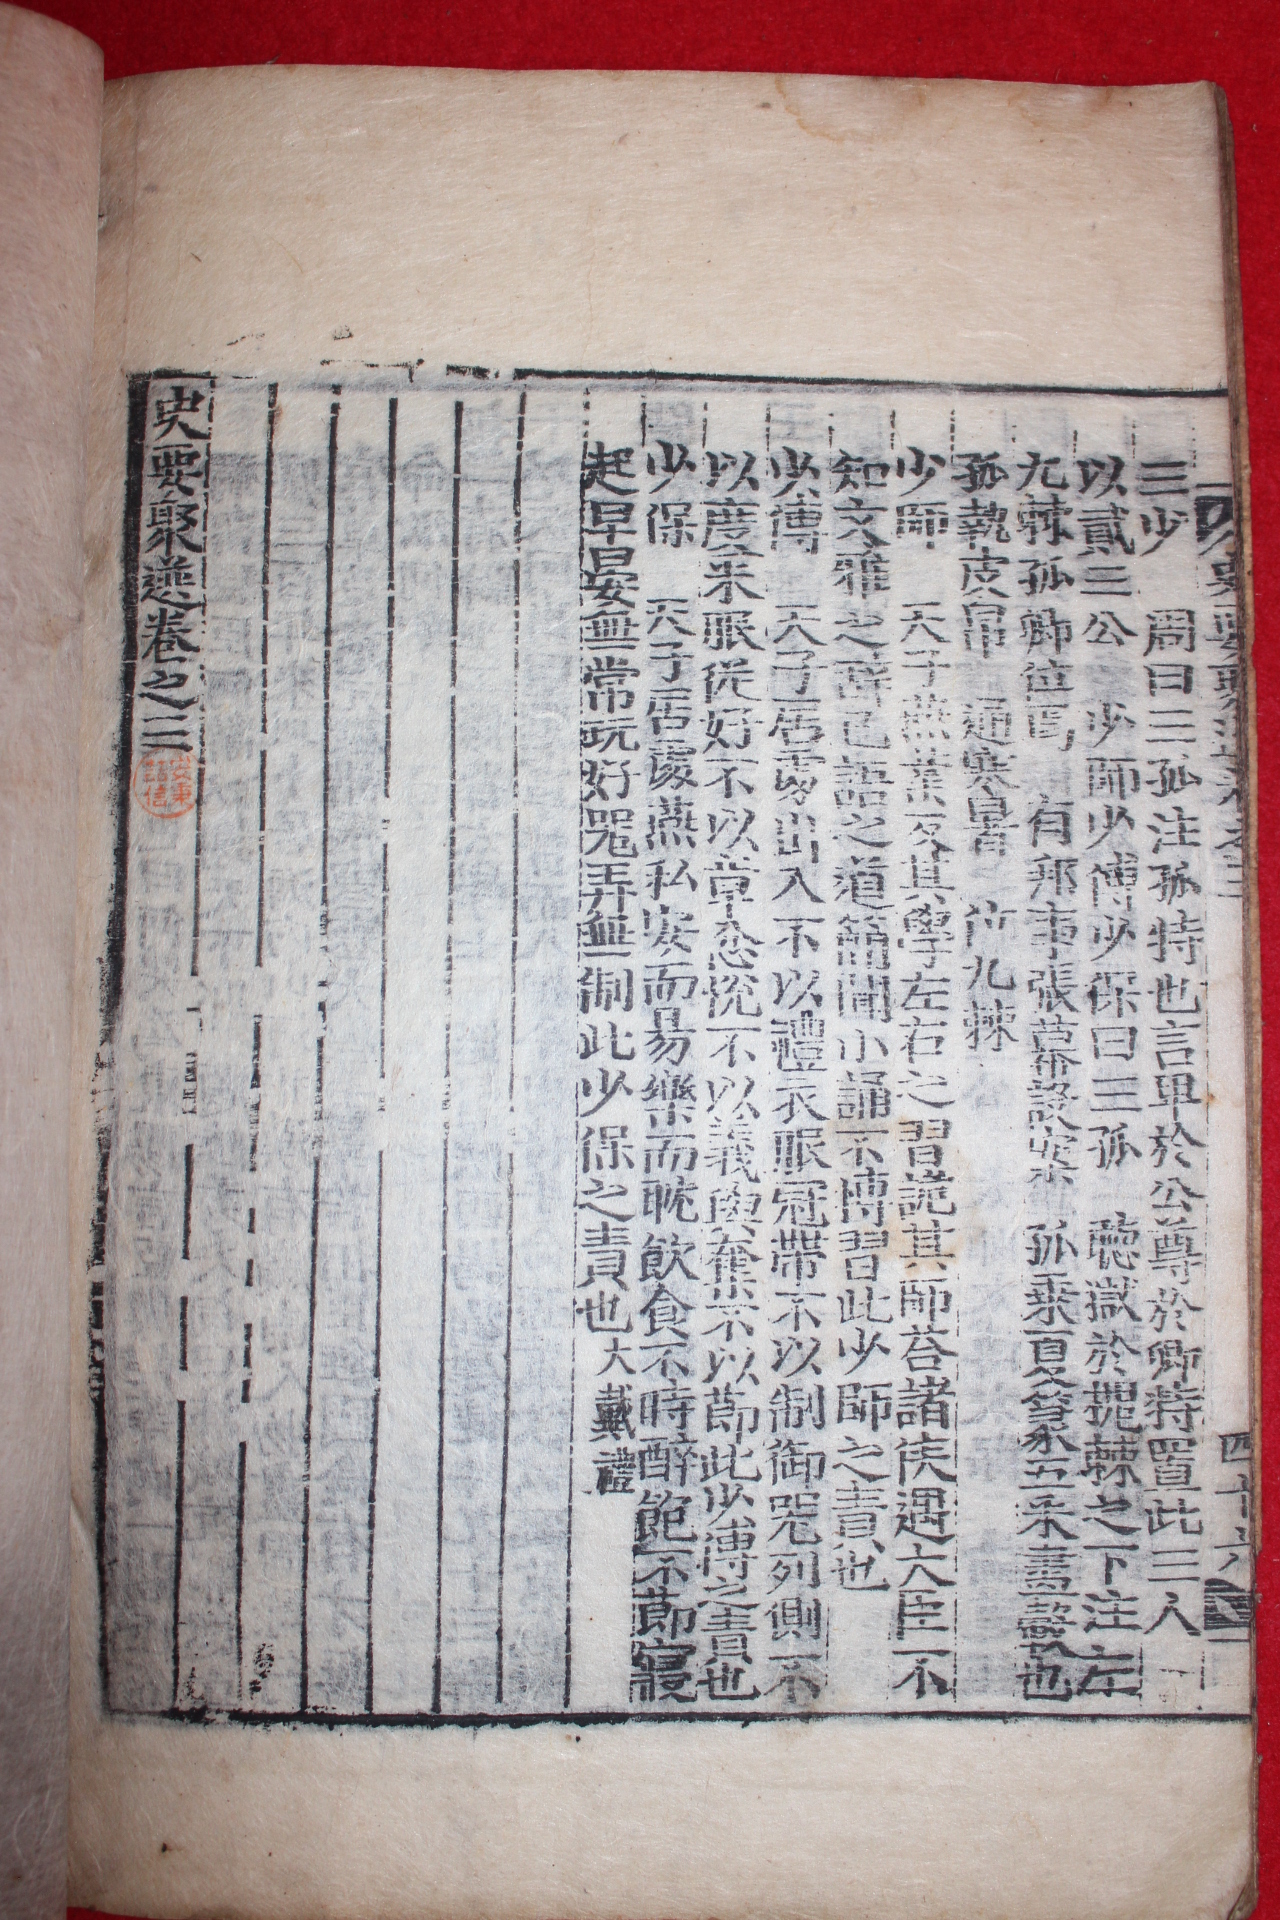 史要聚選卷之三
四十六
三少 周曰三孤注孤特也言卑於公尊於卿特置此三人
以貳三公 少師少傅少保曰三孤 聽獄於槐棘之下注左
九棘孤卿位焉 有邦事張幕設案 孤乘夏篆五采畫轂也
孤執皮帛 逼寒暑 位九棘
少師 天子燕業反其學左右之習詭其師荅諸侯遇大臣不
知文雅之辭已語之道簡聞小誦不博習此少師之責也
少傅 天子居處出入不以禮衣服冠帶不以制御器列側不
以度采服從好不以章忿悅不以義與奪不以節此少傅之責也
少保 天子居處燕私安而易樂而耽飮食不時醉飽不節寢
起早晏無常玩好器弄無制此少保之責也 大戴禮
史要聚選卷之三